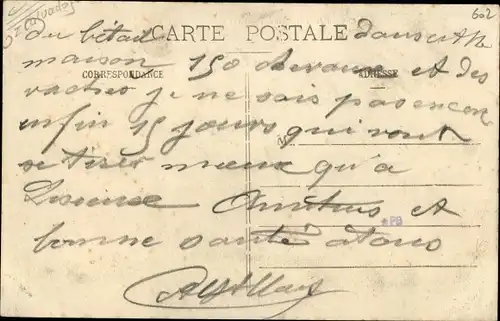 602
CARTE POSTALE
du bétail dans cette
maison 150 chevaux et des
CORRESPONDANCE ADRESSE
vaches je ne sais pas encore
enfin 15 jours qui vont
se tirer mieux qu'a
et
bonne santé a tous